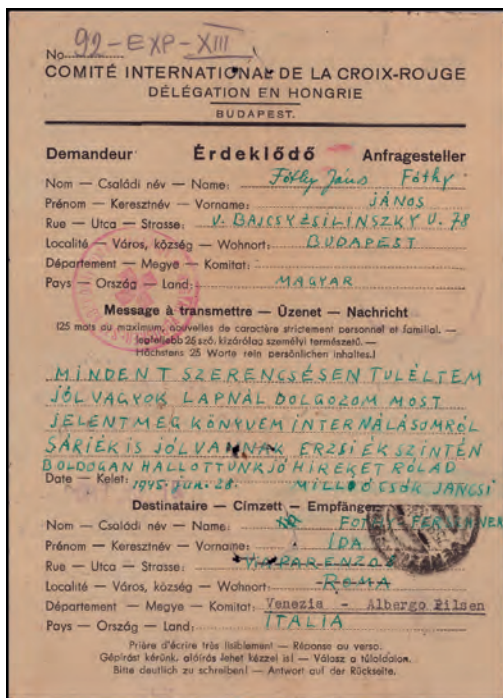 No 92-EXP-XIII
COMITÉ INTERNATIONAL DE LA CROIX-ROUGE
DÉLÉGATION EN HONGRIE
BUDAPEST.
Demandeur Érdeklődő Anfragesteller
Nom — Családi név — Name: Fóthy János Fóthy
Prénom — Keresztnév — Vorname: JÁNOS
Rue — Utca — Strasse: V. BAJCSYZSILINSZKY U. 78
Localité — Város, község — Wohnort: BUDAPEST
Département — Megye — Komitat:
Pays — Ország — Land: MAGYAR
Message à transmettre — Üzenet — Nachricht
(25 mots au maximum, nouvelles de caractère strictement personnel et familial. —
legfeljebb 25 szó, kizárólag személyi természetű. —
Höchstens 25 Worte rein persönlichen Inhaltes.)
MINDENT SZERENCSÉSEN TULÉLTEM
JÓL VAGYOK LAPNÁL DOLGOZOM MOST
JELENT MEG KÖNYVEM INTERNÁLÁSOMRÓL
SÁRIÉK IS JÓL VANNAK ERZSIÉK SZINTÉN
BOLDOGAN HALLOTTUNK JÓ HIREKET RÓLAD
Date — Kelet: 1945. JUN. 28. MILLIÓ CSÓK JANCSI
Destinataire — Címzett — Empfänger
Nom — Családi név — Name: FOTHY
Prénom — Keresztnév — Vorname: IDA
Rue — Utca — Strasse: VIA PARENZO 8
Localité — Város, község — Wohnort: ROMA
Département — Megye — Komitat: Venezia - Albergo Pilsen
Pays — Ország — Land: ITALIA
Prière d'écrire très lisiblement — Réponse au verso.
Gépírást kérünk, aláírás lehet kézzel is! — Válasz a túloldalon.
Bitte deutlich zu schreiben! — Antwort auf der Rückseite.